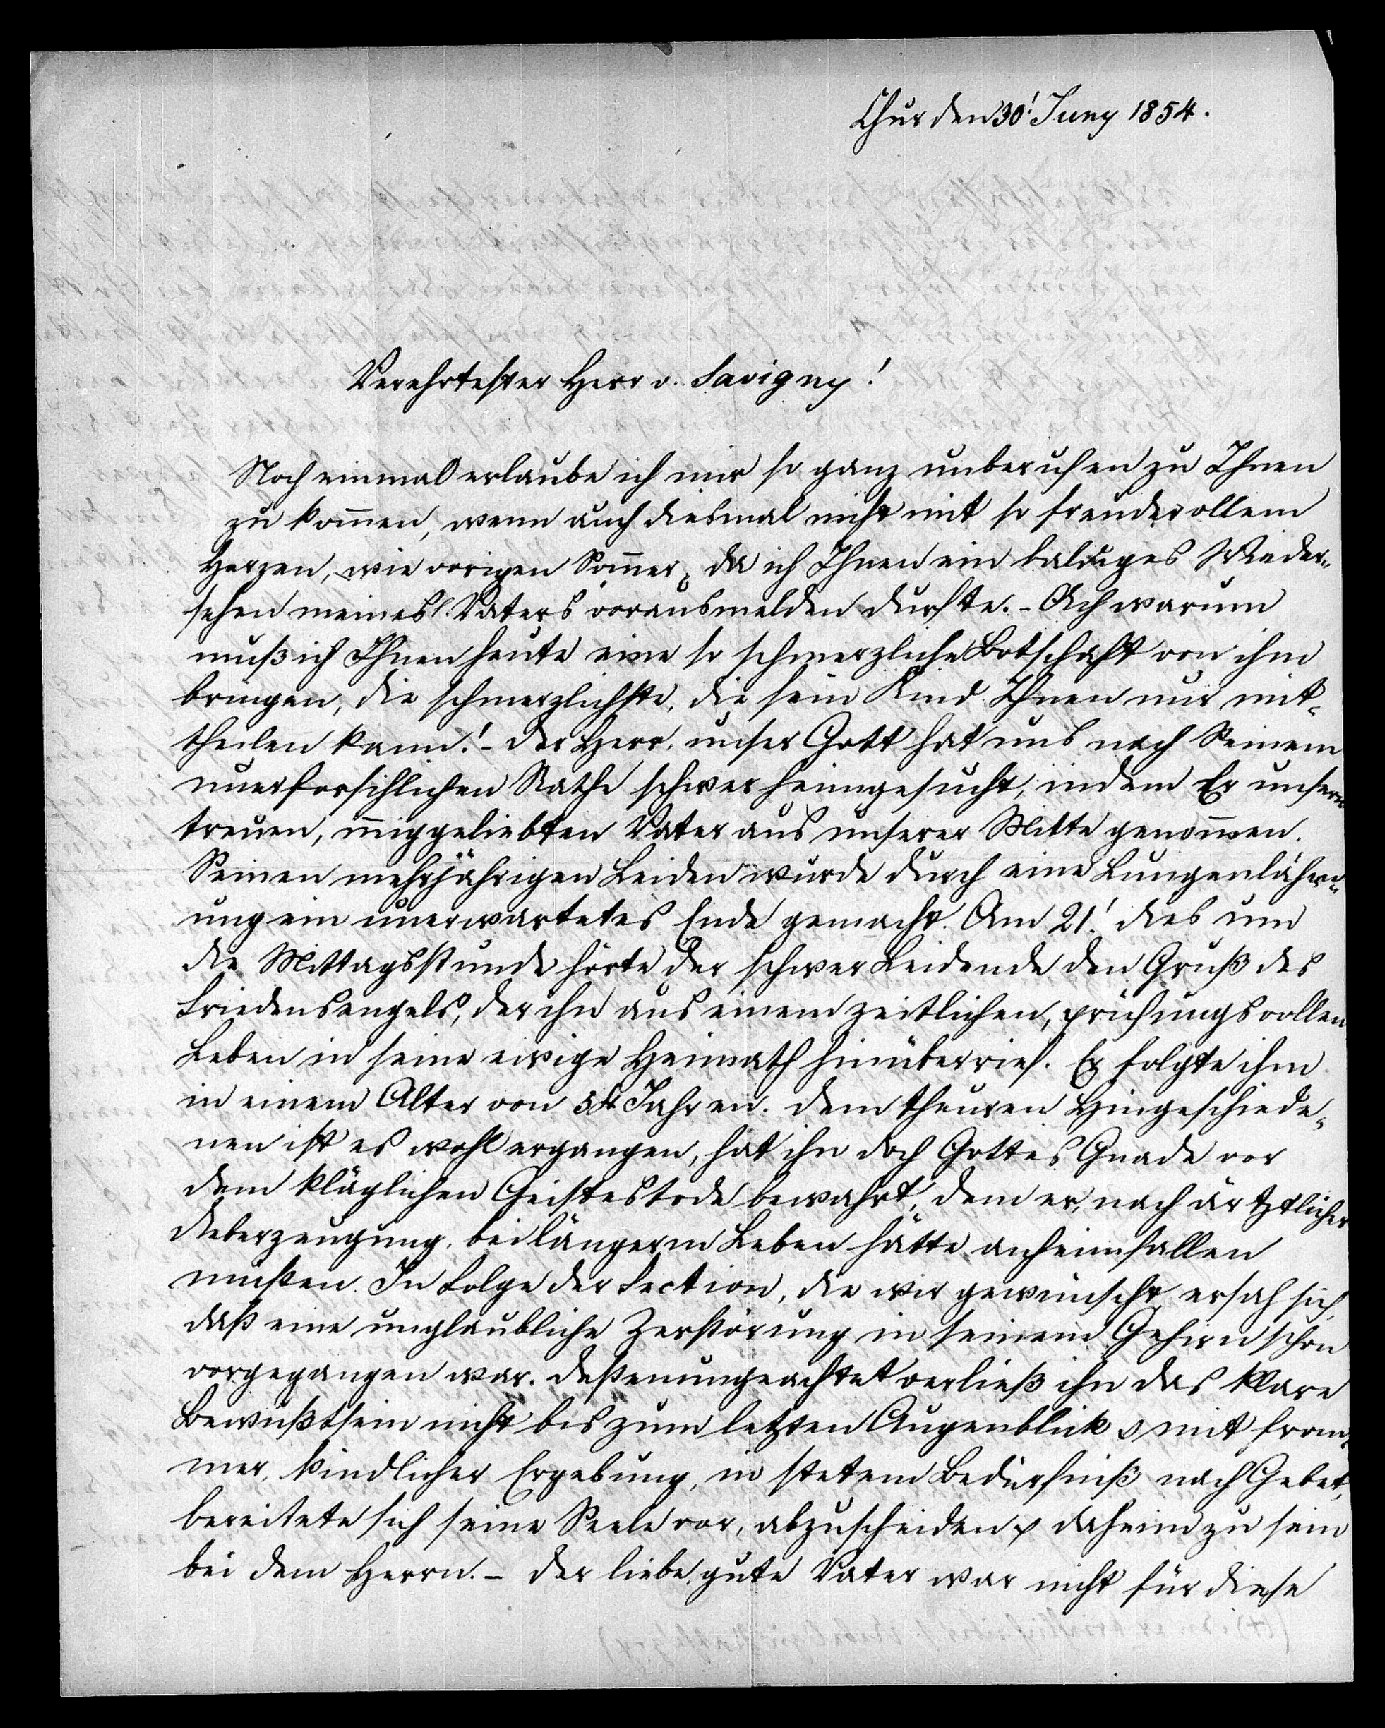 Chur den 30! Juny 1854.
Verehrtester Herr v. Savigny!
Noch einmal erlaube ich mir so ganz unberufen zu Ihnen
zu kom̄en, wenn auch diesmal nicht mit so freudevollem
Herzen, wie vorigen Som̄er, da ich Ihnen ein baldiges Wieder-
sehen meines l. Vaters vorausmelden durfte. - Ach warum
muß ich Ihnen heute eine so schmerzliche Botschaft von ihm
bringen, die schmerzlichste, die sein Kind Ihnen nur mit-
theilen kann! - Der Herr, unser Gott hat uns nach Seinem
unerforschlichen Rathe schwer heimgesucht, indem Er unsern
treuen, innig geliebten Vater aus unserer Mitte genom̄en.
Seinen mehrjährigen Leiden wurde durch eine Lungenlähm-
ung ein unerwartetes Ende gemacht. Am 21! dies um
die Mittagsstunde hörte der schwer Leidende den Gruß des
Friedensengels, der ihn aus einem zeitlichen, prüfungsvollen
Leben in seine ewige Heimath hinüberrief. Er folgte ihm
in einem Alter von 54 Jahren. Dem theuren Hingeschiede-
nen ist es wohl ergangen, hat ihn doch Gottes Gnade vor
dem kläglichen Geistestode bewahrt, dem er, nach ärtztlicher
Ueberzeugung, bei längerm Leben hätte anheimfallen
müssen. In Folge der Section, die wir gewünscht, ersah sich,
daß eine unglaubliche Zerstörung in seinem Gehirn schon
vorgegangen war. Dessenungeachtet verließ ihn das klare
Bewußtsein nicht bis zum letzten Augenblick & mit from-
mer, kindlicher Ergebung, in stetem Bedürfniß nach Gebet,
bereitete sich seine Seele vor, abzuscheiden & daheim zu sein
bei dem Herrn. - Der liebe, gute Vater war nicht für diese